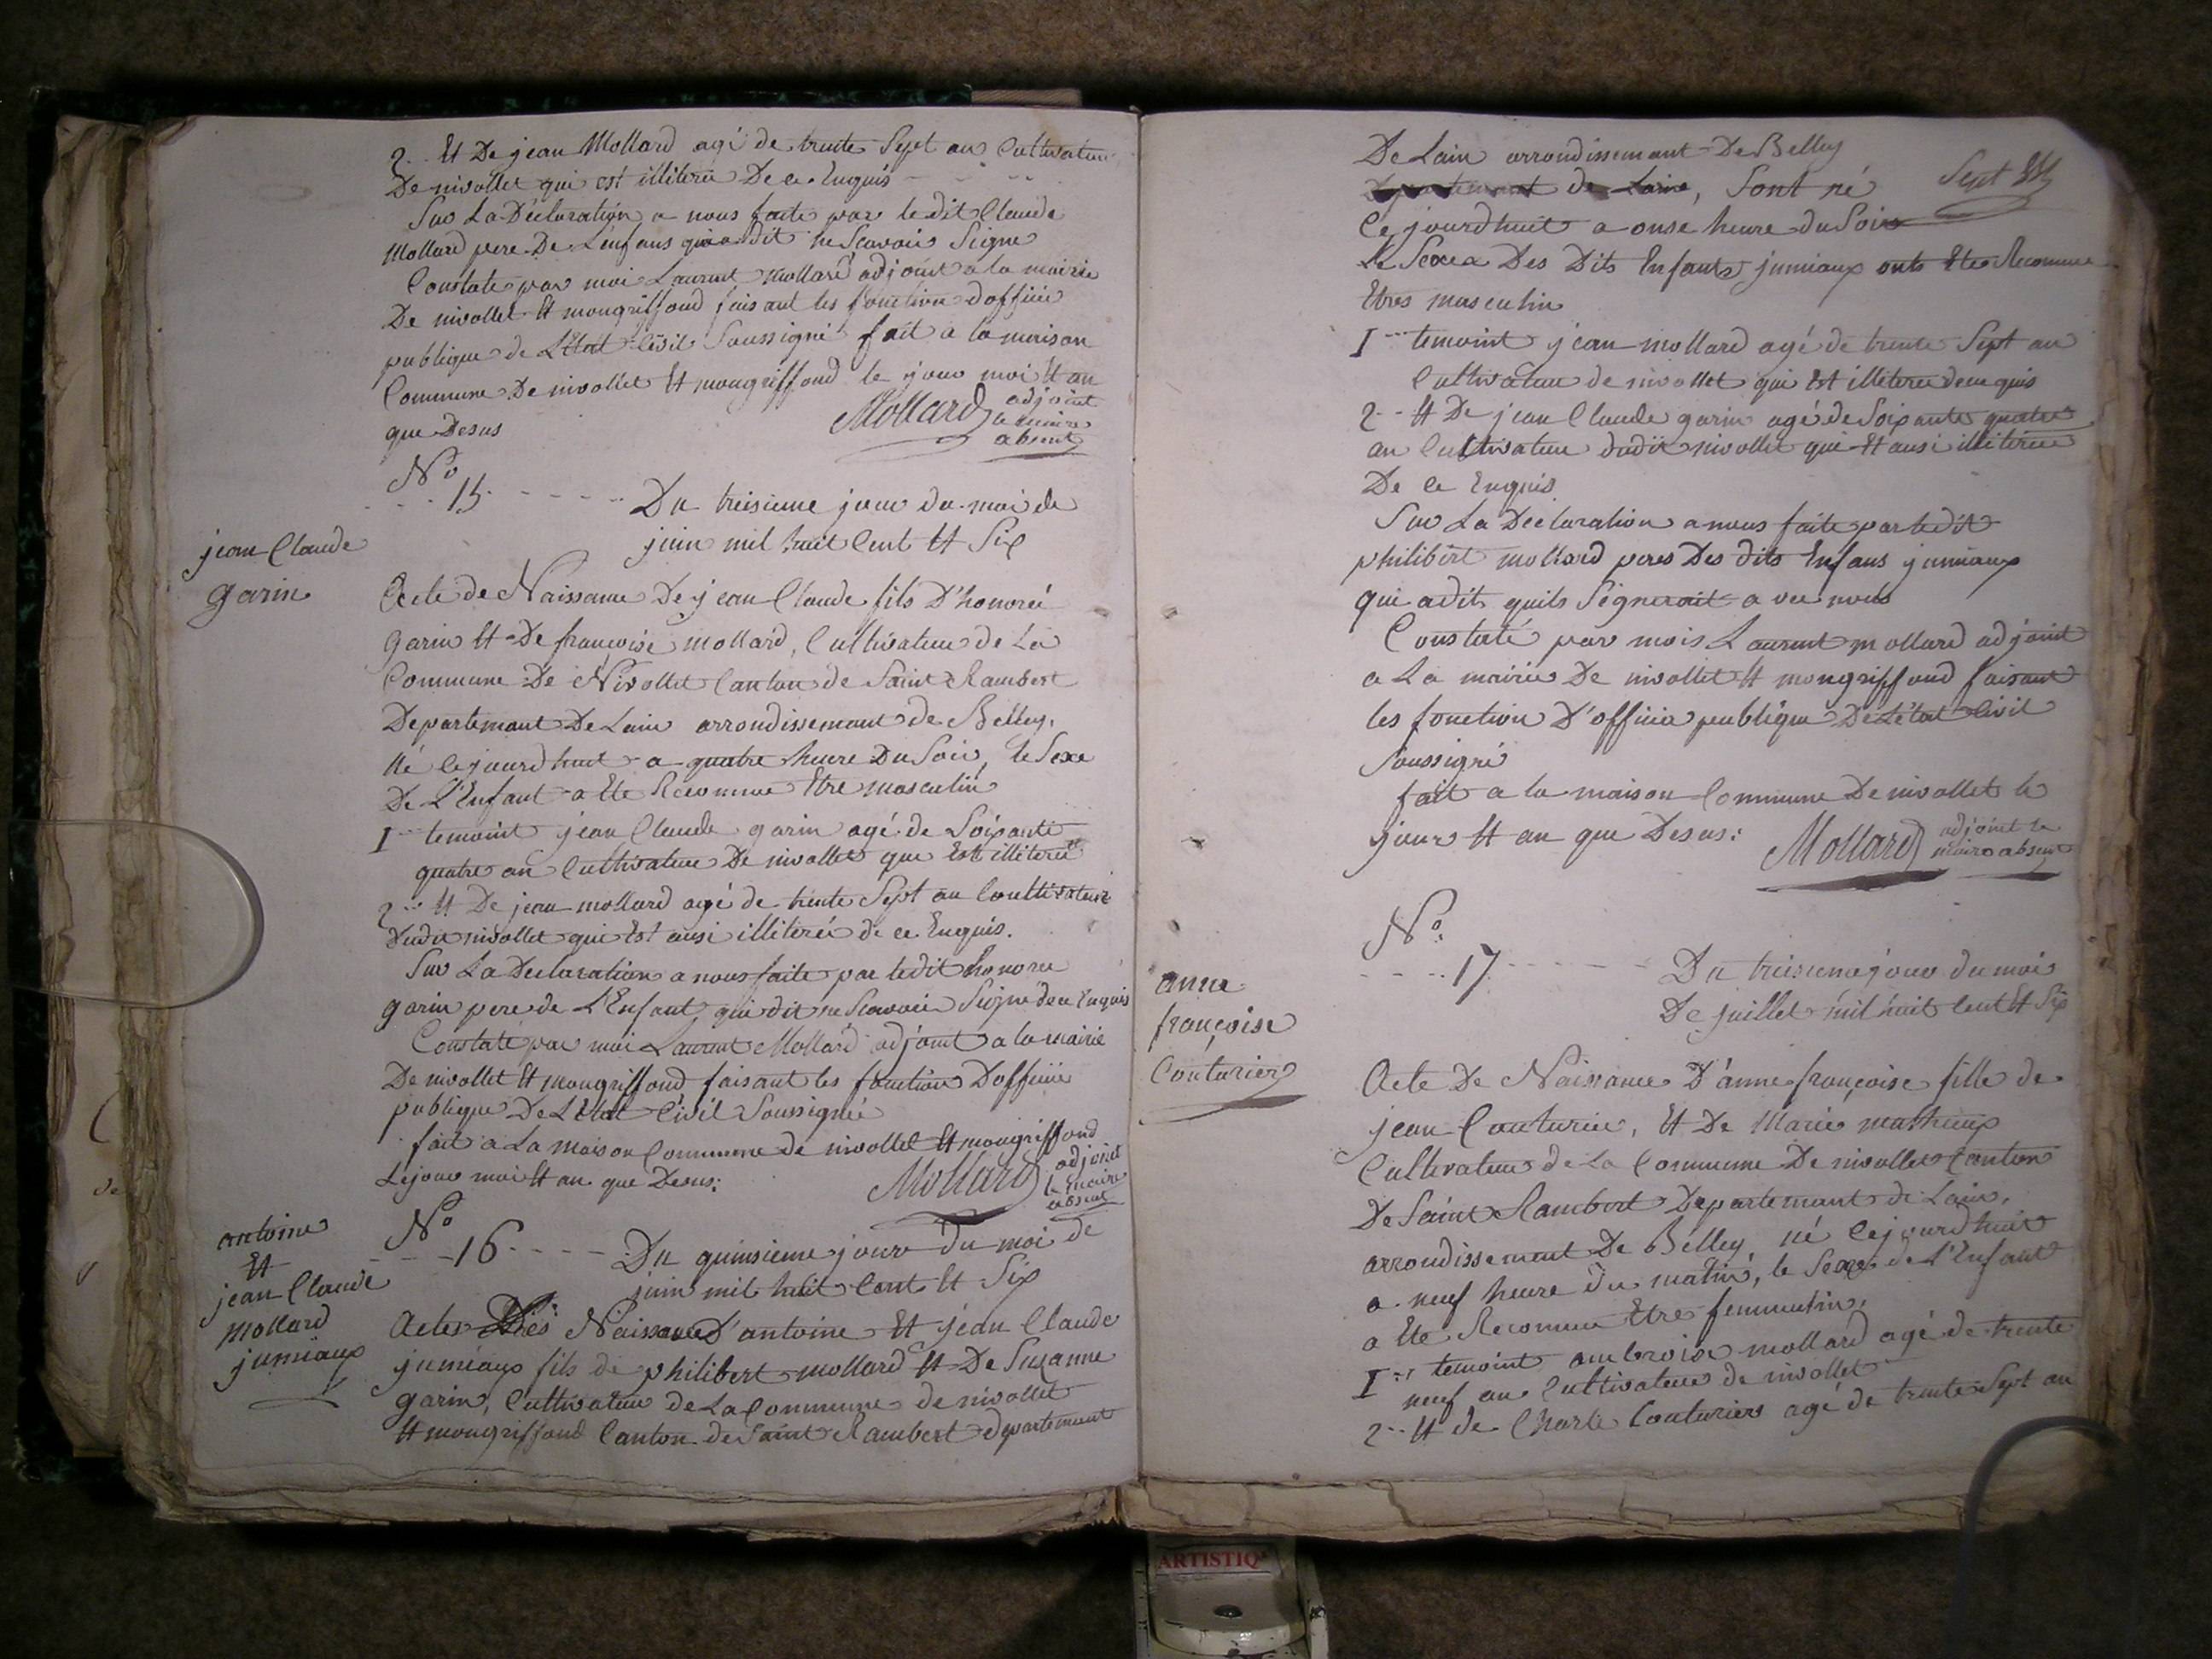 2.. Et De jean Mollard agé de trente Sept an Cultivateur
De nivollet qui est illiteree De ce Enquis
Sur La Declaration a nous faite par le dit Claude
Mollard pere De L'enfans qui a dit ne Scavoir Signe
Constate par moi Laurent mollard adjoint a la mairie
De nivollet Et mongriffond faisant les fonction d'officie
publique de L'Etat Civil Soussigné fait a la maison
Commune De nivollet Et mongriffond le jour moi Et an
que Desus
Mollard adjoint
le maire
absent
No
15
Du treisieme jour du moi de
juin mil huit Cent Et Six
jean Claude
garin
Acte de Naissance De jean Claude fils D'honoreé
garin Et De françoise mollard, Cultivateur de La
Commune De Nivollet Canton de Saint Rambert
Departemant De Lain arrondissemant de Belley,
né Cejourdhuit a quatre heure Du Soir, le Sexe
De L'Enfant a Ete Reconnue Etre masculin
I temoint jean Claude garin agé de Soixante
quatre an Cultivateur De nivollet que Est illiteree
2.. Et De jean mollard agé de trente Sept an Coultivateur
dudit nivollet qui Est ausi illitereé de ce Enquis.
Sur La Declaration a nous faite par ledit honoree
garin pere de L'Enfant, qui dit ne Scavoir Signe de ce Enquis
Constaté par moi Laurent Mollard adjoint a la mairie
De nivollet Et mongriffond faisant les fonction D'officie
publique De L'Etat Civil Soussignée
fait a La maison Commune de nivollet Et mongriffond
Le jour moi Et an que Desus:
Mollard adjoint
le maire
absent
No
16
Du quinsieme jour du moi de
juin mil huit Cent Et Six
antoine
Et
jean Claude
mollard
jumiaux
Actes Des Naissance D'antoine Et jean Claude
jumiaux fils de philibert mollard Et De Suzanne
garin, Cultivateur de La Commune de nivollet
Et mongriffond Canton de Saint Rambert departemant
De Lain arrondissemant De Belley
Sept
departemant de Laine, Sont né
Ce jourdhuit a onse heure du Soir
Le Sexea Des Dits Enfants jumiaux onts Etes Reconnue
Etres masculin
I temoint jean mollard agé de trente Sept an
Cultivateur de nivollet qui Est illiteree de ce quis
2.. Et De jean Claude garin agé de Soixante quatre
an Cultivateur dudit nivollet qui Et ausi illiteree
De Ce Enquis
Sur La Declaration a nous faite par ledit
philibert mollard peres Des dits Enfans jumiaux
qui a dit quils Signerait a vec nous
Constaté par mois Laurent mollard adjoint
a La mairie De nivollet Et mongriffond faisant
les fonction D'officia publique De L'état Civil
Soussigné
fait a la maison Commune De nivollet le
jour Et an que Desus:
Mollard adjoint le
maire absent
No.
17
Du treisieme jour du mois
De juillet mil huit Cent Et Six
anne
françoise
Couturier
Acte De Naissance D'anne françoise fille de
jean Couturier, Et De Marie
Cultivateur de La Commune De nivollet Canton
De Saint Rambert Departemant de Lain,
arrondissemant De Belley, né Cejourdhuit
a neuf heure Du matin, le Sexe de L'Enfant
a Ete Reconnue Etre femmenin,
I temoint ambroise mollard agé de trente
neuf an Cultivateur de nivollet
2.. Et de Charle Couturier agé de trente Sept an
ARTISTIQ